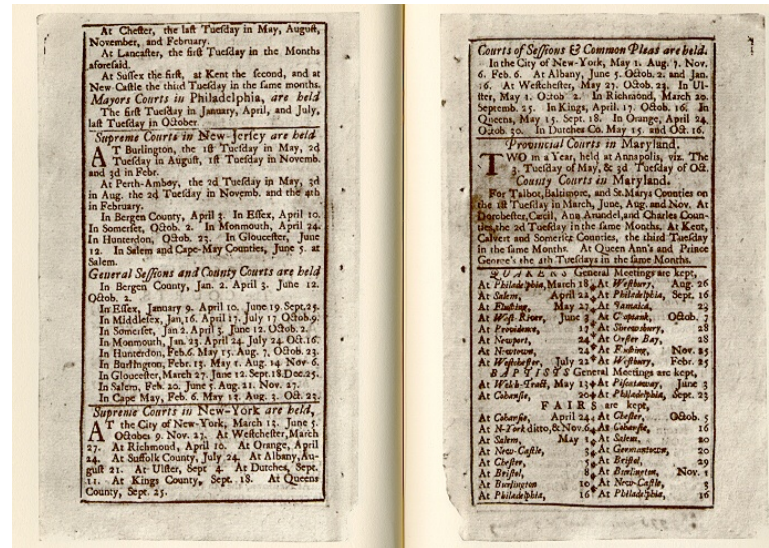 At Chester, the last Tuesday in May, August,
November, and February.
At Lancaster, the first Tuesday in the Months
aforesaid.
At Sussex the first, at Kent the second, and at
New-Castle the third Tuesday in the same months.
Mayors Courts in Philadelphia, are held
The first Tuesday in January, April, and July,
last Tuesday in October.
Supreme Courts in New-Jersey are held
AT Burlington, the 1st Tuesday in May, 2d
Tuesday in August, 1st Tuesday in Novemb.
and 3d in Febr.
At Perth-Amboy, the 2d Tuesday in May, 3d
in Aug. the 2d Tuesday in Novemb. and the 4th
in February.
In Bergen County, April 3. In Essex, April 10.
In Somerset, Octob. 2. In Monmouth, April 24.
In Hunterdon, Octob. 23. In Gloucester, June
12. In Salem and Cape-May Counties, June 5. at
Salem.
General Sessions and County Courts are held
In Bergen County, Jan. 2. April 3. June 12.
Octob. 2.
In Essex, January 9. April 10. June 19 Sept.25.
In Middlesex, Jan,16. April 17. July 17 Octob.9.
In Somerset, Jan 2. April 3. June 12. Octob. 2.
In Monmouth, Jan. 23. April 24. July 24 Oct.16.
In Hunterdon, Feb.6. May 15. Aug. 7, Octob. 23.
In Burlington, Febr. 13. May 1. Aug. 14 Nov 6.
In Gloucester, March 27. June 12. Sept.18.Dec.25.
In Salem, Feb. 20. June 5. Aug. 21. Nov. 27.
In Cape May, Feb. 6. May 13. Aug. 3. Oct. 23.
Supreme Courts in New-York are held,
AT the City of New-York, March 13. June 5.
October 9. Nov. 27. At Westchester, March
27. At Richmond, April 10. At Orange, April
24. At Suffolk County, July 24. At Albany, Au-
gust 21. At Ulster, Sept 4. At Dutches, Sept.
11. At Kings County, Sept. 18. At Queens
County, Sept. 25.
Courts of Sessions & Common Pleas are held.
In the City of New-York, May 1. Aug. 7. Nov.
6. Feb. 6. At Albany, June 5. Octob. 2. and Jan.
16. At Westchester, May 27. Octob. 23. In Ul-
ster, May 1. Octob 2. In Richmond, March 20.
Septemb. 25. In Kings, April. 17. Octob. 16. In
Queens, May 15. Sept. 18. In Orange, April 24.
Octob. 30. In Dutches Co. May 15. and Oct. 16.
Provincial Courts in Maryland.
TWO in a Year, held at Annapolis, viz. The
3. Tuesday of May, & 3d Tuesday of Oct.
County Courts in Maryland.
For Talbot, Baltimore, and St. Marys Counties on
the 1st Tuesday in March, June, Aug. and Nov. At
Dorchester, Cæcil, Ann Arundel, and Charles Coun-
ties, the 2d Tuesday in the same Months. At Kent,
Calvert and Somerset Counties, the third Tuesday
in the same Months. At Queen Ann's and Prince
George's the 4th Tuesdays in the same Months.
QUAKERS General Meetings are kept,
At Philadelphia, March 18 At Westbury, Aug. 26
At Salem, April 22 At Philadelphia, Sept. 16
At Flushing, May 27 At Jamaica, 23
At West River, June 3 At Coptank, Octob. 7
At Providence, 17 At Shrewsbury, 28
At Newport, 24 At Oyster Bay, 28
At Newtown, 24 At Flushing, Nov. 25
At Westchester, July 22 At Westbury, Febr. 25
BAPTISTS General Meetings are kept,
At Welch-Tract, May 13 At Piscataway, June 3
At Cohansie, 20 At Philadelphia, Sept. 23
FAIRS are kept,
At Cohansie, April 24 At Chester, Octob. 5
At N-York ditto, & Nov.6 At Cohansie, 16
At Salem, May 1 At Salem, 20
At New-Castle, 3 At Germantown, 20
At Chester, 5 At Bristol, 29
At Bristol, 8 At Burlington, Nov. 1
At Burlington 10 At New-Castle, 3
At Philadelphia, 16 At Philadelphia, 16